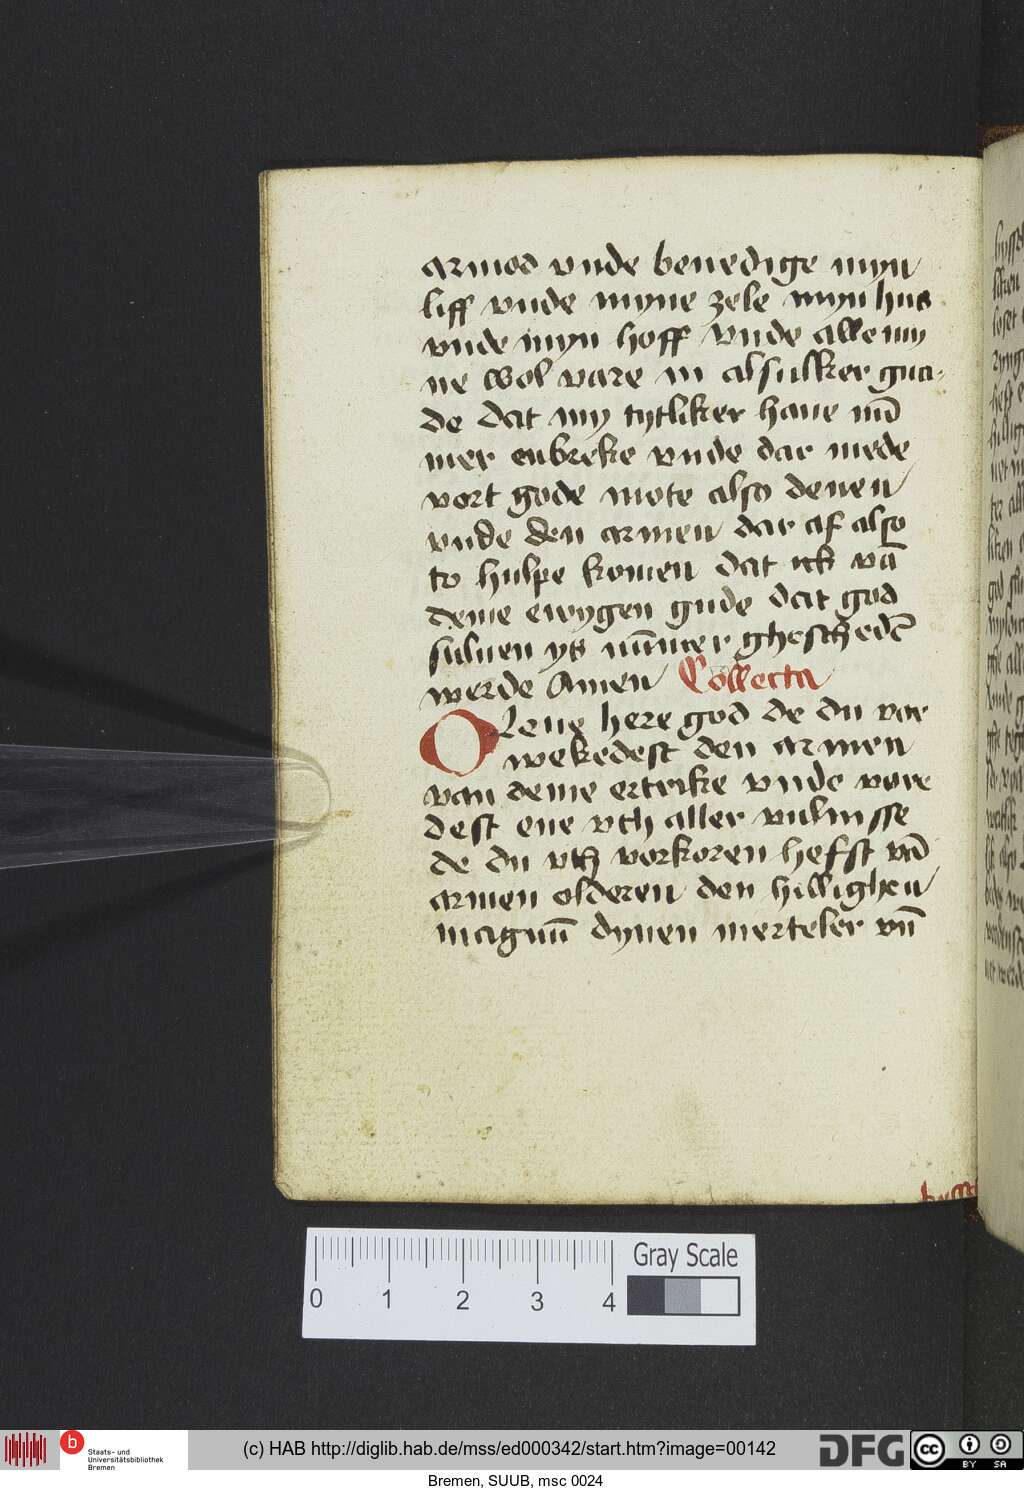 armod vnde benedige myn
liff vnde myne zele myn hus
vnde myn hoff vnde alle my
ne wol vare in alsulker gna-
de dat my tytliker haue nū
mer enbreke vnde dar mede
vort gode mote also denen
vnde den armen dar af also
to hulpe komen dat ick vā
deme ewygen gude dat god
suluen ys nūmer ghescheden̄
werde Amen Collecta
O Leue here god de du vor
wekedest den armen
van deme ertrike vnde vore
dest ene vth aller vulnisse
de du vth vorkoren hefst vā
armen olderen den hillighen
magnū dynen merteler vn̄
0 1 2 3 4
Gray Scale
b Staats- und
Universitätsbibliothek
Bremen
(c) HAB http://diglib.hab.de/mss/ed000342/start.htm?image=00142
DFG
cc BY SA
Bremen, SUUB, msc 0024